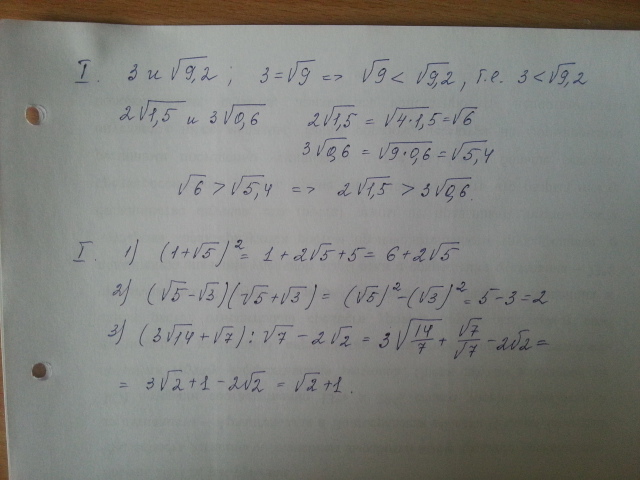 I. 3 и √9,2 ; 3=√9 => √9 < √9,2 , т.е. 3<√9,2
2√1,5 и 3√0,6 2√1,5 = √4·1,5=√6
3√0,6 = √9·0,6=√5,4
√6 >√5,4 => 2√1,5 >3√0,6.
I. 1) (1+√5)²= 1+2√5+5= 6+2√5
2) (√5-√3)(√5+√3)= (√5)²-(√3)²= 5-3=2
3) (3√14+√7):√7-2√2 = 3√14/7+√7/√7-2√2=
= 3√2+1-2√2 = √2+1.